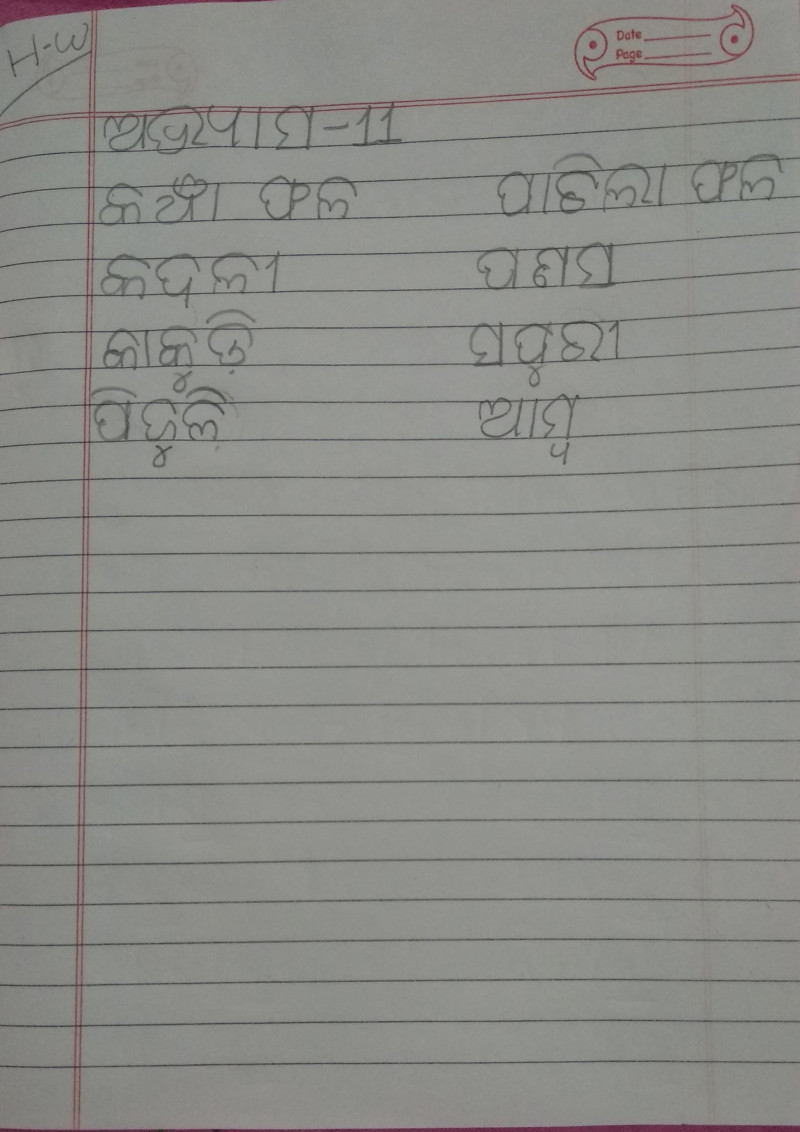 H-W
Date
Page
ଅଭ୍ୟାସ-11
କଞ୍ଚା ଫଳ ପାଚିଲା ଫଳ
କଦଳୀ ପଣସ
କାକୁଡ଼ି ସପୁରୀ
ପିଜୁଳି ଆମ୍ବ